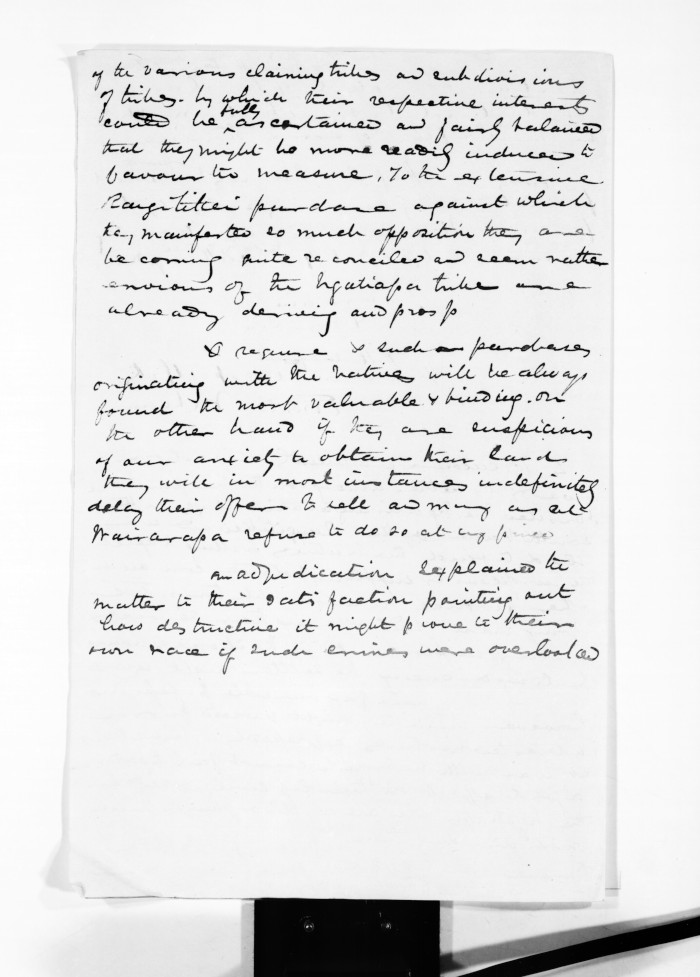 of the various claiming tribes and subdivisions
of tribes. by which their respective interests
could be fully ascertained and fairly balanced
that they might be more readily induced to
favour the measure, To the extensive
Rangitikei purchase against which
they manifested so much opposition they are
becoming quite reconciled and seem rather
envious of the Ngatiapa tribe are
already deriving and prosp
& require & such purchases
originating with the Natives will be always
found the most valuable & binding. On
the other hand if they are suspicious
of our anxiety to obtain their lands
they will in most instances indefinitely
delay their offers to sell and many as at
Wairarapa refuse to do so at any price
an adjudication explained the
matter to their satisfaction pointing out
how destructive it might prove to their
own race if such crimes were overlooked